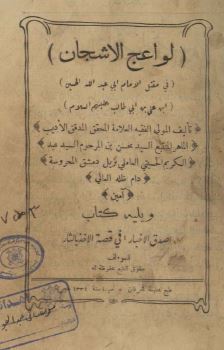 ( لواعج الاشجان )
( في مقتل الامام ابي عبد الله الحسين )
( ابن علي بن ابي طالب عليهم السلام )
تأليف المولى الفقيه العلامة المحقق المدقق الأديب
الماهر السيد محسن بن المرحوم السيد عبد
الكريم الحسيني العاملي نزيل دمشق المحروسة
دام ظله العالي
آمين
ويليه كتاب
اصدق الاخبار في قصة الاخذ بالثار
للمؤلف
حقوق الطبع محفوظة له